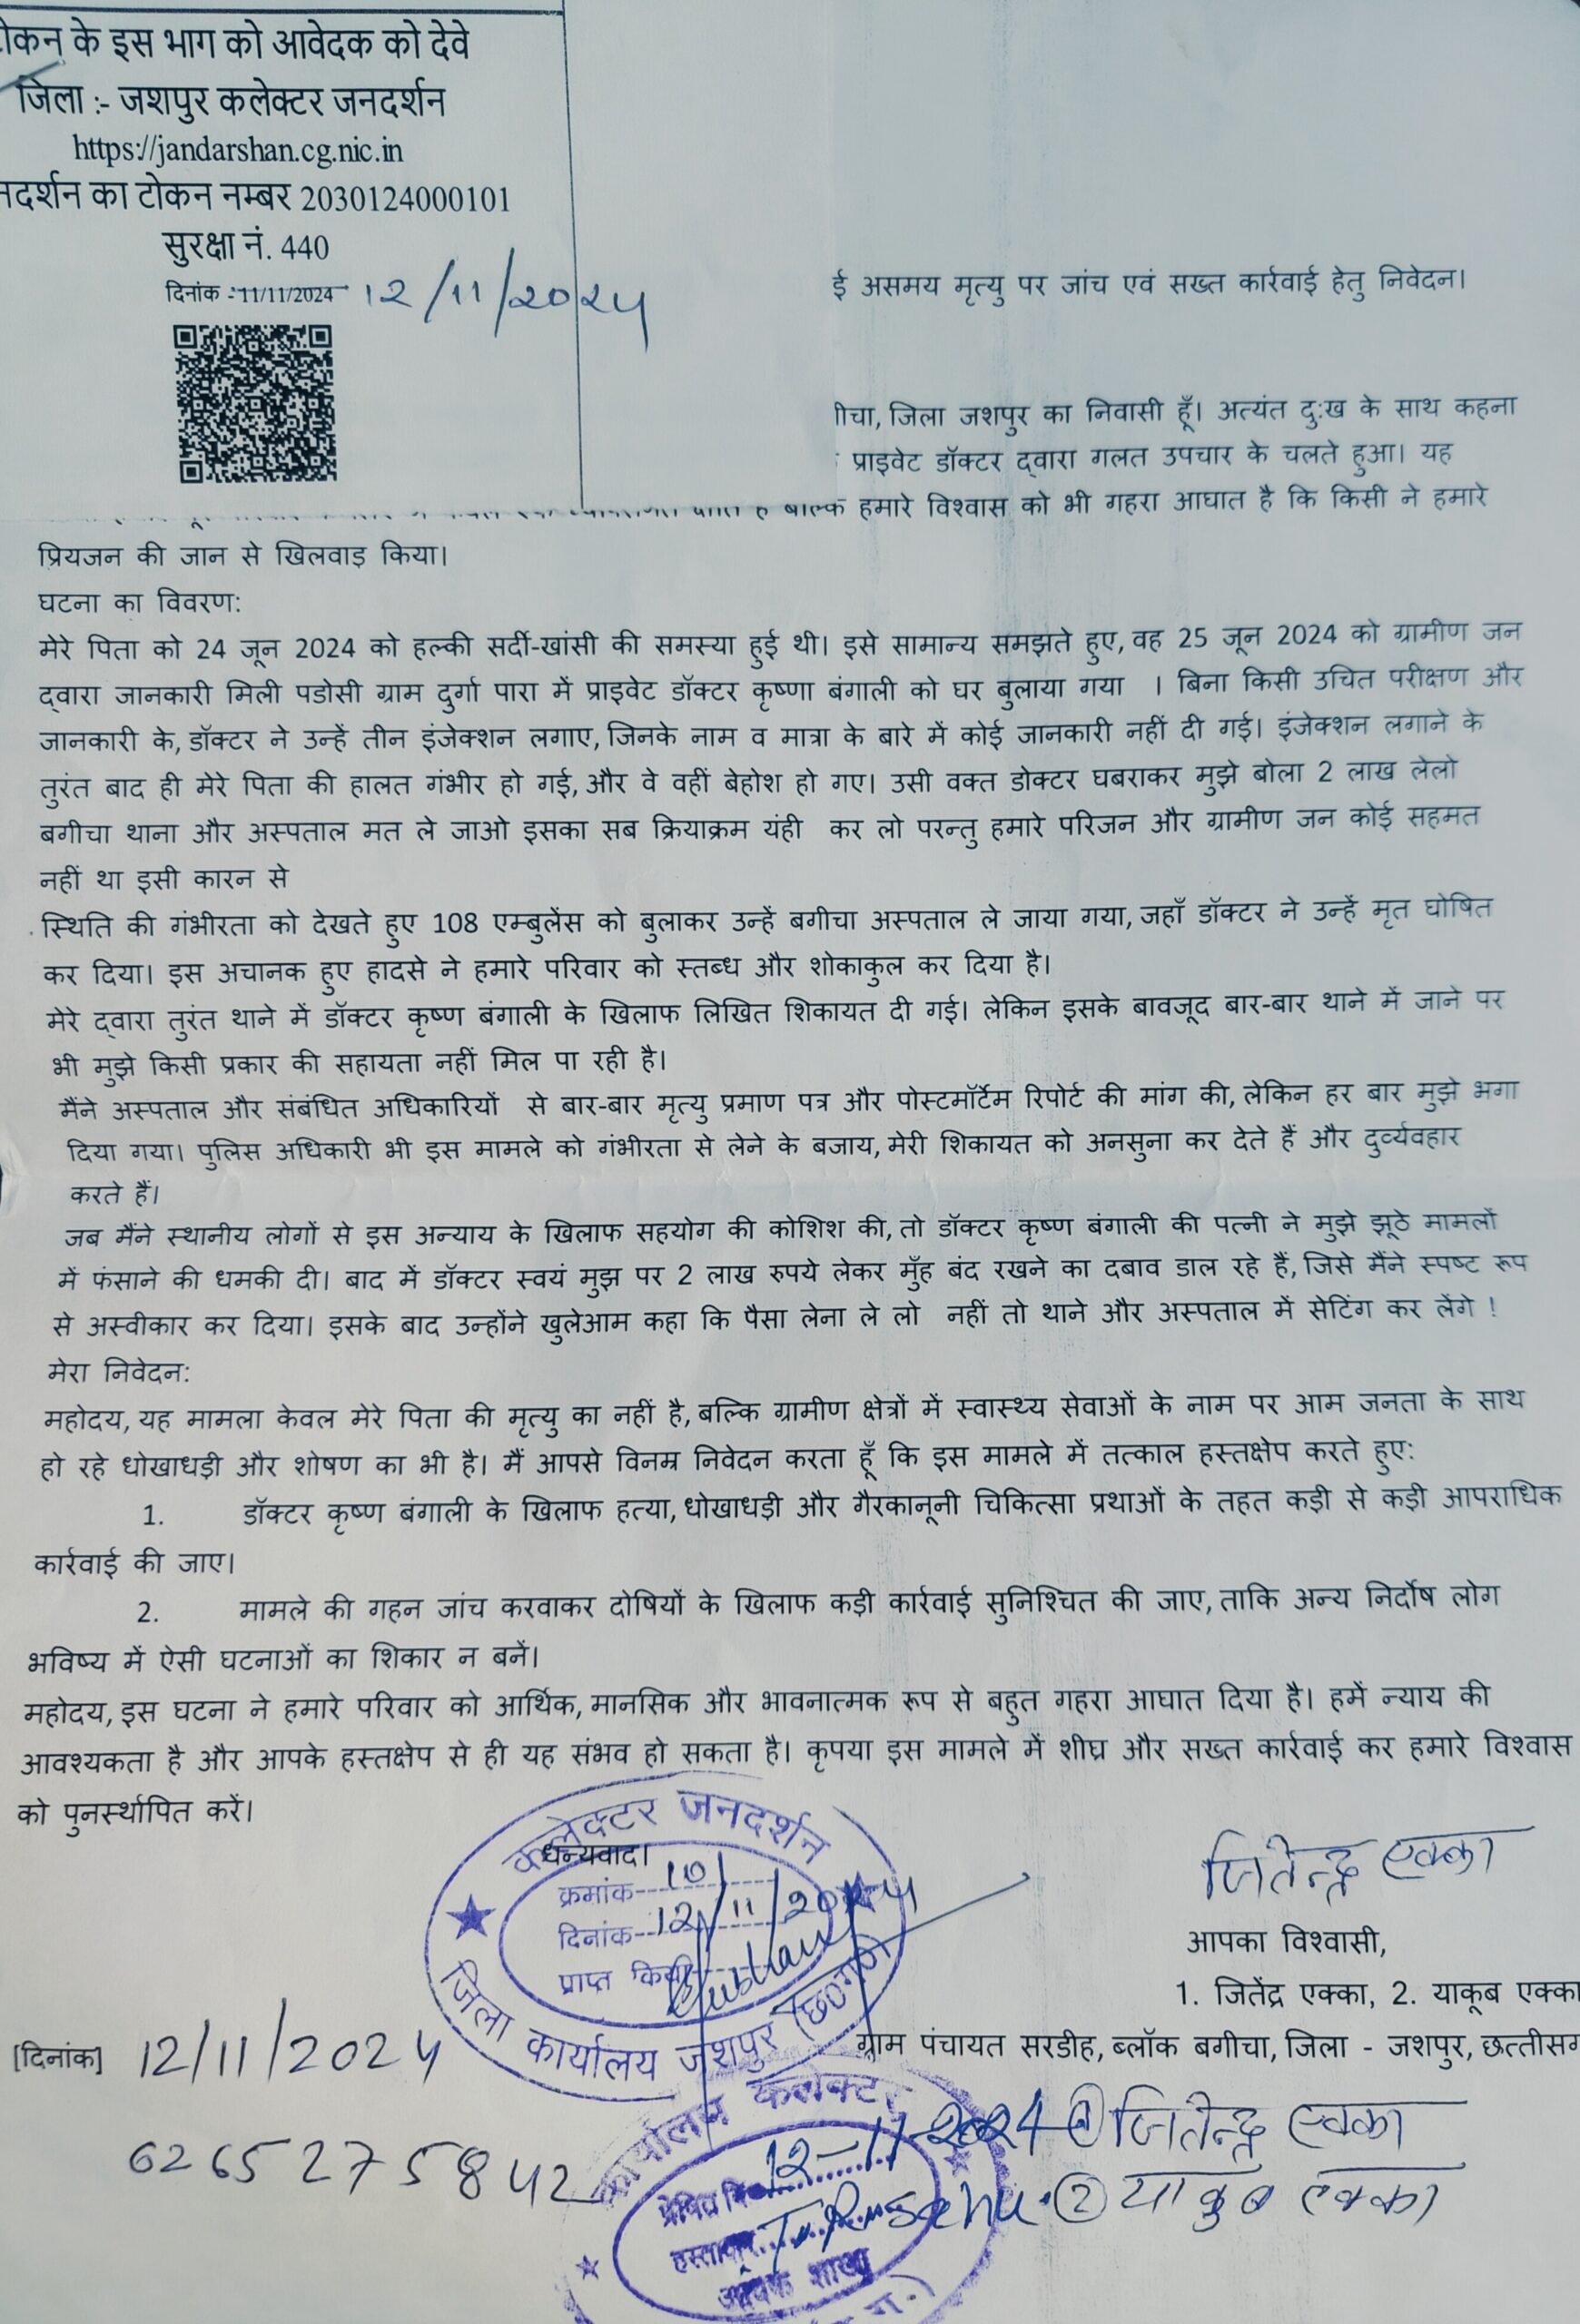 टोकन के इस भाग को आवेदक को देवे
जिला :- जशपुर कलेक्टर जनदर्शन
https://jandarshan.cg.nic.in
नदर्शन का टोकन नम्बर 2030124000101
सुरक्षा नं. 440
दिनांक :-11/11/2024 12/11/2024
ई असमय मृत्यु पर जांच एवं सख्त कार्रवाई हेतु निवेदन।
गीचा, जिला जशपुर का निवासी हूँ। अत्यंत दु:ख के साथ कहना
प्राइवेट डॉक्टर द्वारा गलत उपचार के चलते हुआ। यह
हमारे विश्वास को भी गहरा आघात है कि किसी ने हमारे
प्रियजन की जान से खिलवाड़ किया।
घटना का विवरण:
मेरे पिता को 24 जून 2024 को हल्की सर्दी-खांसी की समस्या हुई थी। इसे सामान्य समझते हुए, वह 25 जून 2024 को ग्रामीण जन
द्वारा जानकारी मिली पडोसी ग्राम दुर्गा पारा में प्राइवेट डॉक्टर कृष्णा बंगाली को घर बुलाया गया । बिना किसी उचित परीक्षण और
जानकारी के, डॉक्टर ने उन्हें तीन इंजेक्शन लगाए, जिनके नाम व मात्रा के बारे में कोई जानकारी नहीं दी गई। इंजेक्शन लगाने के
तुरंत बाद ही मेरे पिता की हालत गंभीर हो गई, और वे वहीं बेहोश हो गए। उसी वक्त डोक्टर घबराकर मुझे बोला 2 लाख लेलो
बगीचा थाना और अस्पताल मत ले जाओ इसका सब क्रियाक्रम यंही कर लो परन्तु हमारे परिजन और ग्रामीण जन कोई सहमत
नहीं था इसी कारन से
स्थिति की गंभीरता को देखते हुए 108 एम्बुलेंस को बुलाकर उन्हें बगीचा अस्पताल ले जाया गया, जहाँ डॉक्टर ने उन्हें मृत घोषित
कर दिया। इस अचानक हुए हादसे ने हमारे परिवार को स्तब्ध और शोकाकुल कर दिया है।
मेरे द्वारा तुरंत थाने में डॉक्टर कृष्ण बंगाली के खिलाफ लिखित शिकायत दी गई। लेकिन इसके बावजूद बार-बार थाने में जाने पर
भी मुझे किसी प्रकार की सहायता नहीं मिल पा रही है।
मैंने अस्पताल और संबंधित अधिकारियों से बार-बार मृत्यु प्रमाण पत्र और पोस्टमॉर्टेम रिपोर्ट की मांग की, लेकिन हर बार मुझे भगा
दिया गया। पुलिस अधिकारी भी इस मामले को गंभीरता से लेने के बजाय, मेरी शिकायत को अनसुना कर देते हैं और दुर्व्यवहार
करते हैं।
जब मैंने स्थानीय लोगों से इस अन्याय के खिलाफ सहयोग की कोशिश की, तो डॉक्टर कृष्ण बंगाली की पत्नी ने मुझे झूठे मामलों
में फंसाने की धमकी दी। बाद में डॉक्टर स्वयं मुझ पर 2 लाख रुपये लेकर मुँह बंद रखने का दबाव डाल रहे हैं, जिसे मैंने स्पष्ट रूप
से अस्वीकार कर दिया। इसके बाद उन्होंने खुलेआम कहा कि पैसा लेना ले लो नहीं तो थाने और अस्पताल में सेटिंग कर लेंगे !
मेरा निवेदन:
महोदय, यह मामला केवल मेरे पिता की मृत्यु का नहीं है, बल्कि ग्रामीण क्षेत्रों में स्वास्थ्य सेवाओं के नाम पर आम जनता के साथ
हो रहे धोखाधड़ी और शोषण का भी है। मैं आपसे विनम्र निवेदन करता हूँ कि इस मामले में तत्काल हस्तक्षेप करते हुए:
1. डॉक्टर कृष्ण बंगाली के खिलाफ हत्या, धोखाधड़ी और गैरकानूनी चिकित्सा प्रथाओं के तहत कड़ी से कड़ी आपराधिक
कार्रवाई की जाए।
2. मामले की गहन जांच करवाकर दोषियों के खिलाफ कड़ी कार्रवाई सुनिश्चित की जाए, ताकि अन्य निर्दोष लोग
भविष्य में ऐसी घटनाओं का शिकार न बनें।
महोदय, इस घटना ने हमारे परिवार को आर्थिक, मानसिक और भावनात्मक रूप से बहुत गहरा आघात दिया है। हमें न्याय की
आवश्यकता है और आपके हस्तक्षेप से ही यह संभव हो सकता है। कृपया इस मामले में शीघ्र और सख्त कार्रवाई कर हमारे विश्वास
को पुनर्स्थापित करें।
कलेक्टर जनदर्शन
धन्यवाद।
क्रमांक 101
दिनांक 12/11/2024
प्राप्त किया
जिला कार्यालय जशपुर (छ०ग०)
जितेन्द्र एक्का
आपका विश्वासी,
1. जितेंद्र एक्का, 2. याकूब एक्का
ग्राम पंचायत सरडीह, ब्लॉक बगीचा, जिला - जशपुर, छत्तीसग
[दिनांक] 12/11/2024
6265275842
कार्यालय कलेक्ट
12-11-2024
हस्ताक्षर
आवक शाखा
① जितेन्द्र एक्का
② याकुब एक्का